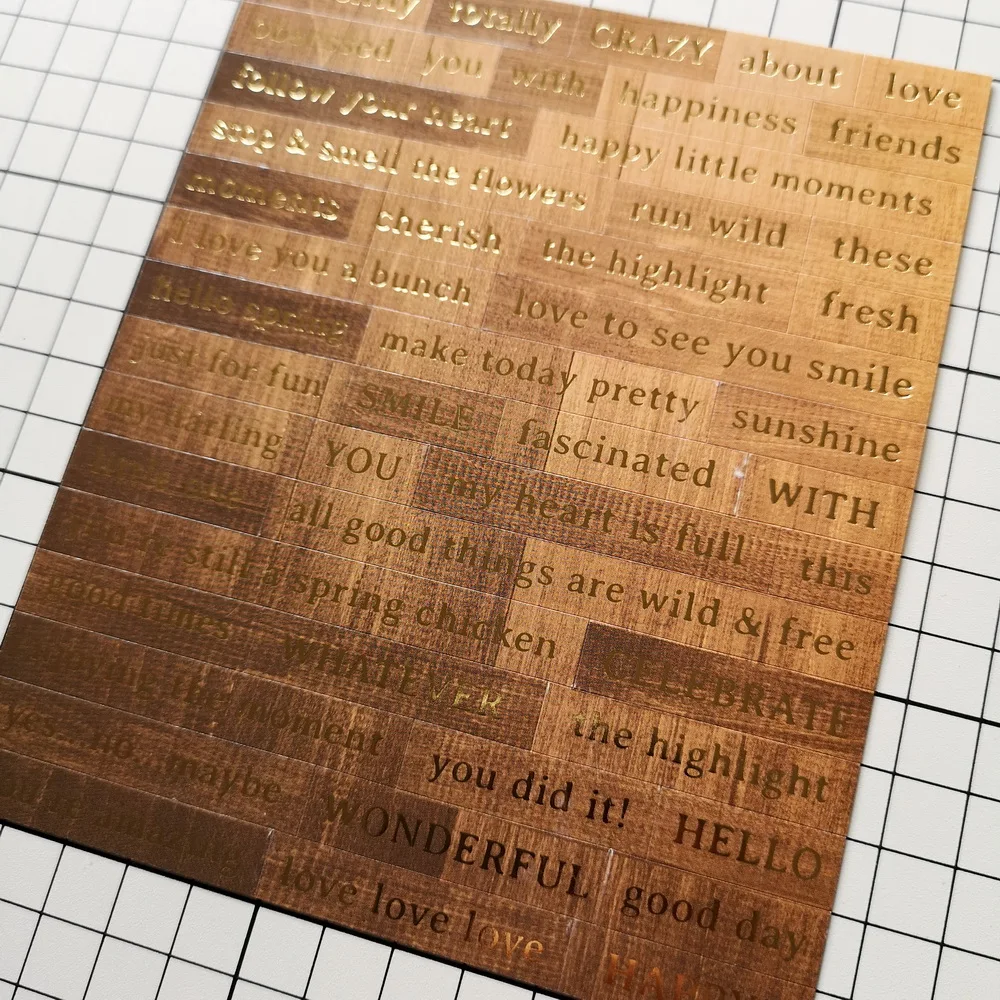 totally CRAZY about love
obsessed you with happiness friends
follow your heart happy little moments
stop & smell the flowers run wild these
moments cherish the highlight fresh
I love you a bunch love to see you smile
hello spring make today pretty sunshine
just for fun SMILE fascinated WITH
my darling YOU my heart is full this
all good things are wild & free
still a spring chicken CELEBRATE
good times WHATEVER the highlight
the moment you did it! HELLO
yes...no...maybe WONDERFUL good day
love love love